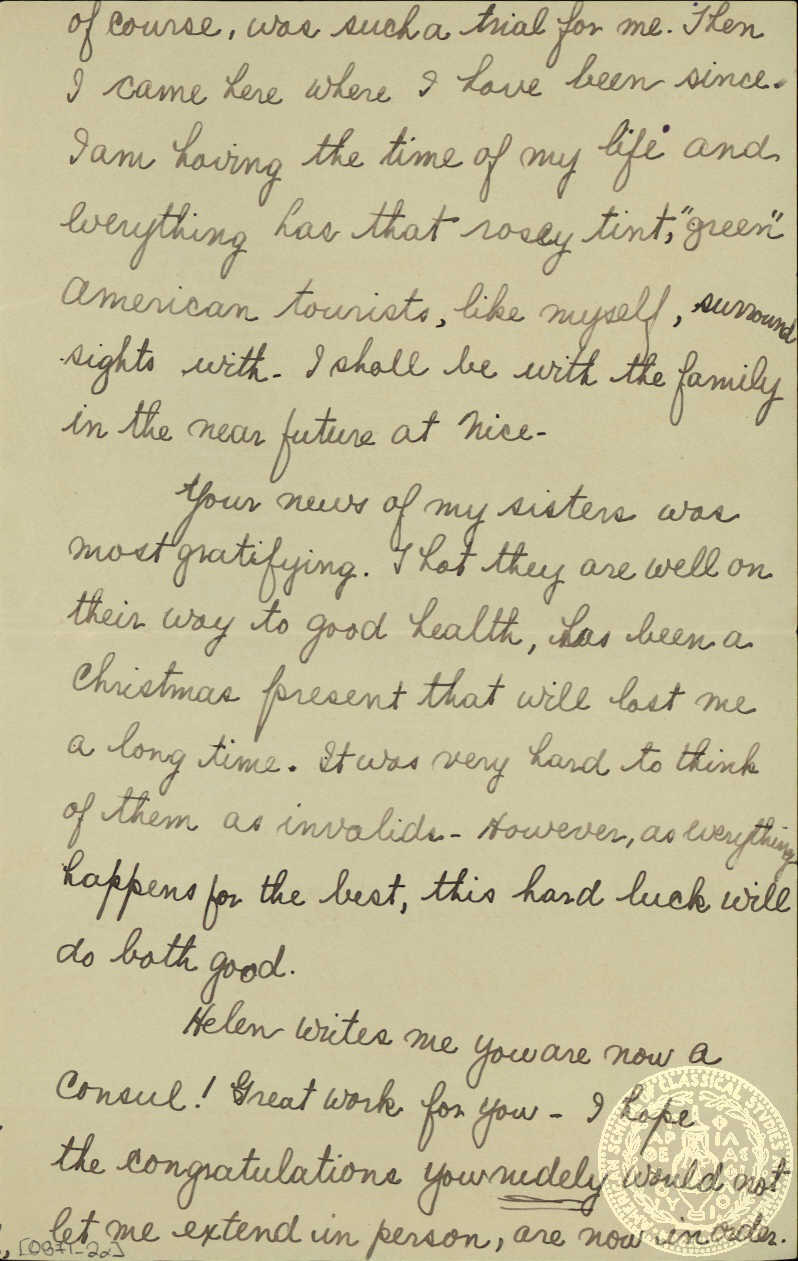 of course, was such a trial for me. Then
I came here where I have been since.
I am having the time of my life and
everything has that rosey tint, "green"
American tourists, like myself, surround
sights with - I shall be with the family
in the near future at Nice -
Your news of my sisters was
most gratifying. That they are well on
their way to good health, has been a
Christmas present that will last me
a long time. It was very hard to think
of them as invalids - However, as everything
happens for the best, this hard luck will
do both good.
Helen writes me you are now a
Consul! Great work for you - I hope
the congratulations you rudely would not
let me extend in person, are now in order.
[0871-22]
AMERICAN SCHOOL OF CLASSICAL STUDIES